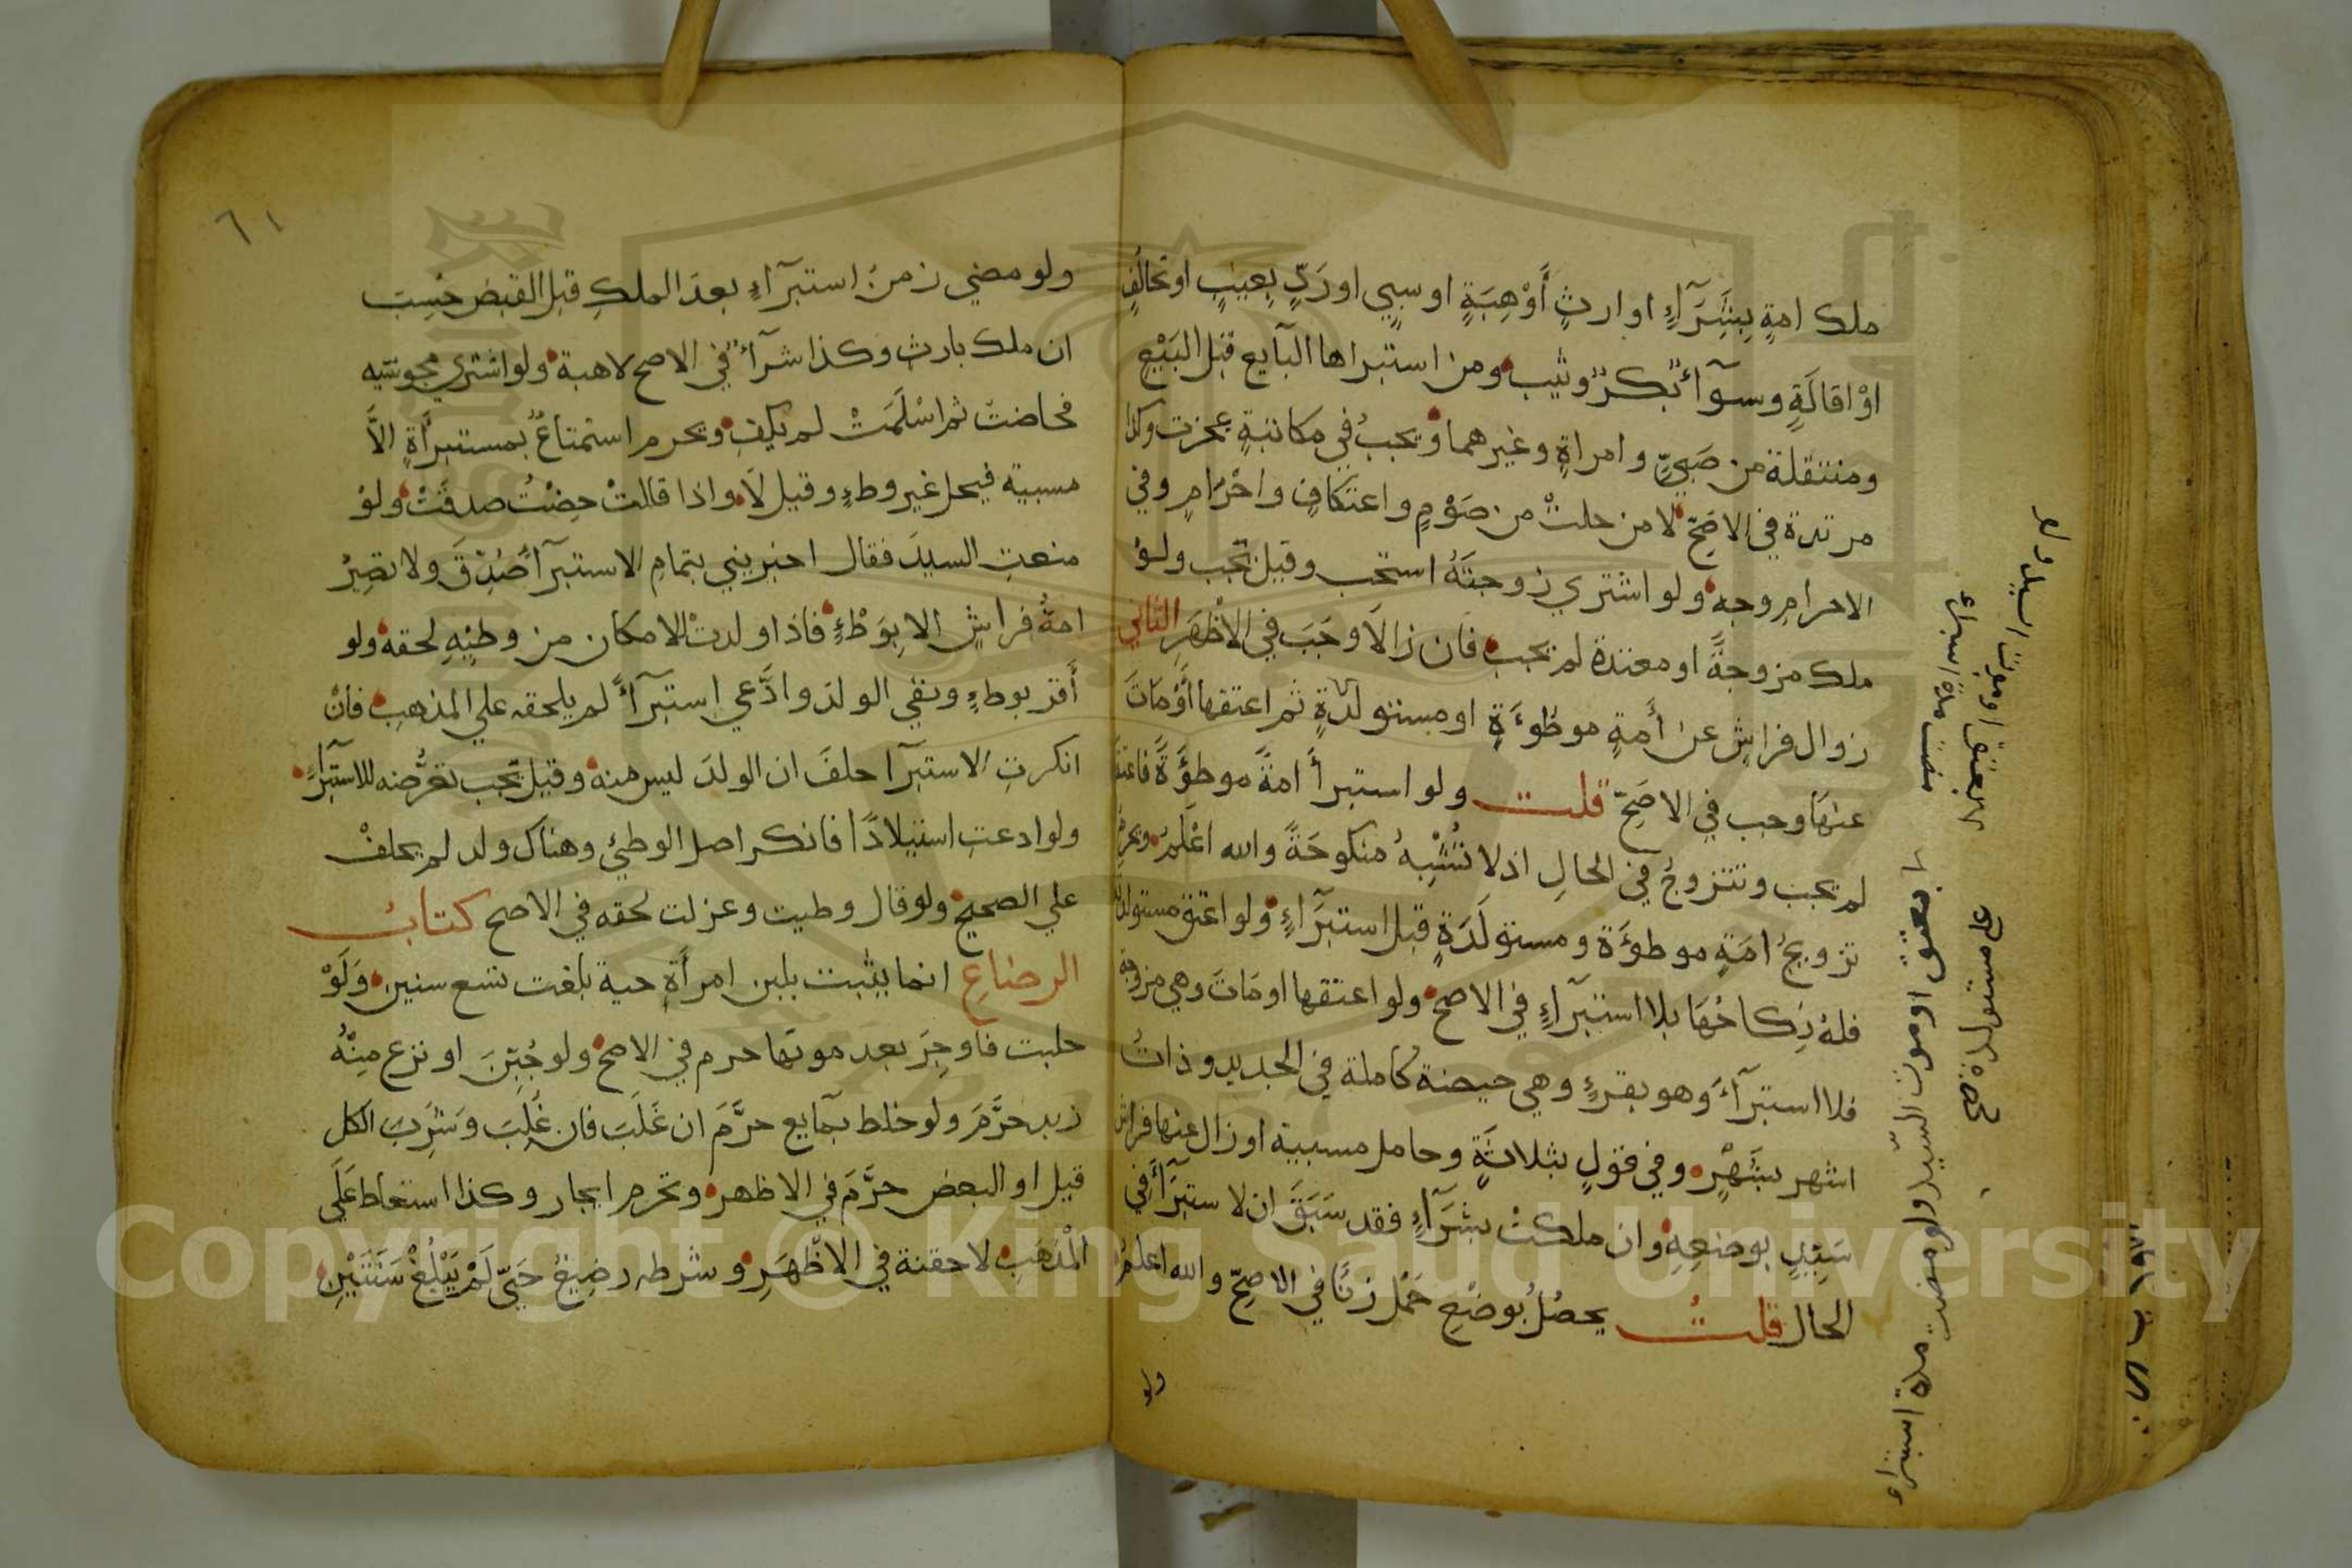 ملك امةٍ بِشِرَآءٍ او ارثٍ أَوْ هِبَةٍ او سبيٍ او رَدٍّ بِعيبٍ او تحالُفٍ
اوْ اقالَةٍ وسوآءٌ بكرٌ وثيب ومن استبراها البآيع قبْل البَيْعِ
ومنتقلة من صَبيٍّ وامراةٍ وغيرهما ويجبُ في مكاتبةٍ عجزت وكذا
مرتدة في الاصَحِّ لا من حلتْ من صَوْمٍ واعتكافٍ واحْرَامٍ وفي
الاحرامِ وجه ولو اشتري زوجتَهُ استحب وقيل تجب ولوْ
ملك مزوجةً او معتدة لم يجب فان زالاَ وجَبَ في الاظْهَرِ الثاني
زوال فراشٍ عن أَمةٍ موطُوءَةٍ او مستولدةٍ ثم اعتقها أَوْ مَاتَ
عنهَا وجب في الاصَحِّ قلت ولو استبرأَ امةً موطؤَةً فاعتقَ
لم يجب وتتزوجُ في الحالِ اذ لا تُشْبِهُ منكوحَةً والله اعْلمُ ويحرم
تزويجُ امَةٍ موطؤَة ومستولَدَةٍ قبل استبرَآءٍ ولو اعتق مستولدتَهُ
فلهُ نِكاحُهَا بلا استبرآءٍ في الاصح ولو اعتقها او مَاتَ وهي مزوجة
فلا استبرآءَ وهو بقرءٍ وهي حيضة كاملة في الجديد وذاتُ
اشهر بشَهْرٍ وفي قولٍ بثلاثَةٍ وحامل مسبية او زال عنها فراش
سَيِّدٍ بوضعِهِ وان ملكتْ بشَرَآءٍ فقد سَبَقَ ان لا ستبَرَأَ في
الحال قلتُ يحصُلُ بوضْعِ حَمْل زنًا في الاصحّ والله اعلمُ
ولو
بعتق او موت السيّد ولو مضت مدة استبراء
علي مستولدة صح
السيد ولو
ولو مضي زمنُ استبرآءٍ بعدَ الملكِ قبل القبض حُسِبَ
ان ملك بارث وكذا شرآءٌ في الاصح لا هبة ولو اشتري مجوسيّه
فحاضتْ ثم اسْلَمَتْ لم يكفِ ويحرم استمتاعٌ بمستبرأَةٍ الاَّ
مسبية فيحل غير وطءٍ وقيل لاَ واذا قالتْ حِضْتُ صدقَتْ ولوْ
منعتِ السيدَ فقال اخبريني بتمامِ الاستبرآ صُدِّقَ ولا تصِيرُ
امةٌ فراش الا بِوَطْءٍ فاذا ولدتْ للامكان من وطئِهِ لحقه ولو
أَقر بوطءٍ ونفي الولدَ وادَّعي استبرآءً لم يلحقه علي المذهبِ فانْ
انكرتِ الاستبرآ حلفَ ان الولدَ ليس منه وقيل يجب تعرُّضه للاستبرآءِ
ولو ادعتِ استيلادًا فانكر اصل الوطئِ وهناك ولد لم يحلفْ
علي الصحيح ولو قال وطيت وعزلت لحقه في الاصح كتابُ
الرضاعِ انما يثبت بلبن امرأةٍ حية بلغت تسع سنين ولَوْ
حلبت فاوجِرَ بعد موتها حرم في الاصح ولو جُبِّنَ او نزع مِنْهُ
زبد حَرَّمَ ولو خلط بمآيع حرَّمَ ان غَلَبَ فان غُلِبَ وَشَرِبَ الكل
قيل او البعض حرَّمَ في الاظهر وتحرم ايجار وكذا استعاط عَلَي
المْذهَبِ لا حقنة في الاظْهَرِ وشرطه رضيعٌ حَيّ لَمْ يَبْلُغْ سَنَتَيْنِ
٦١
Copyright © King Saud University